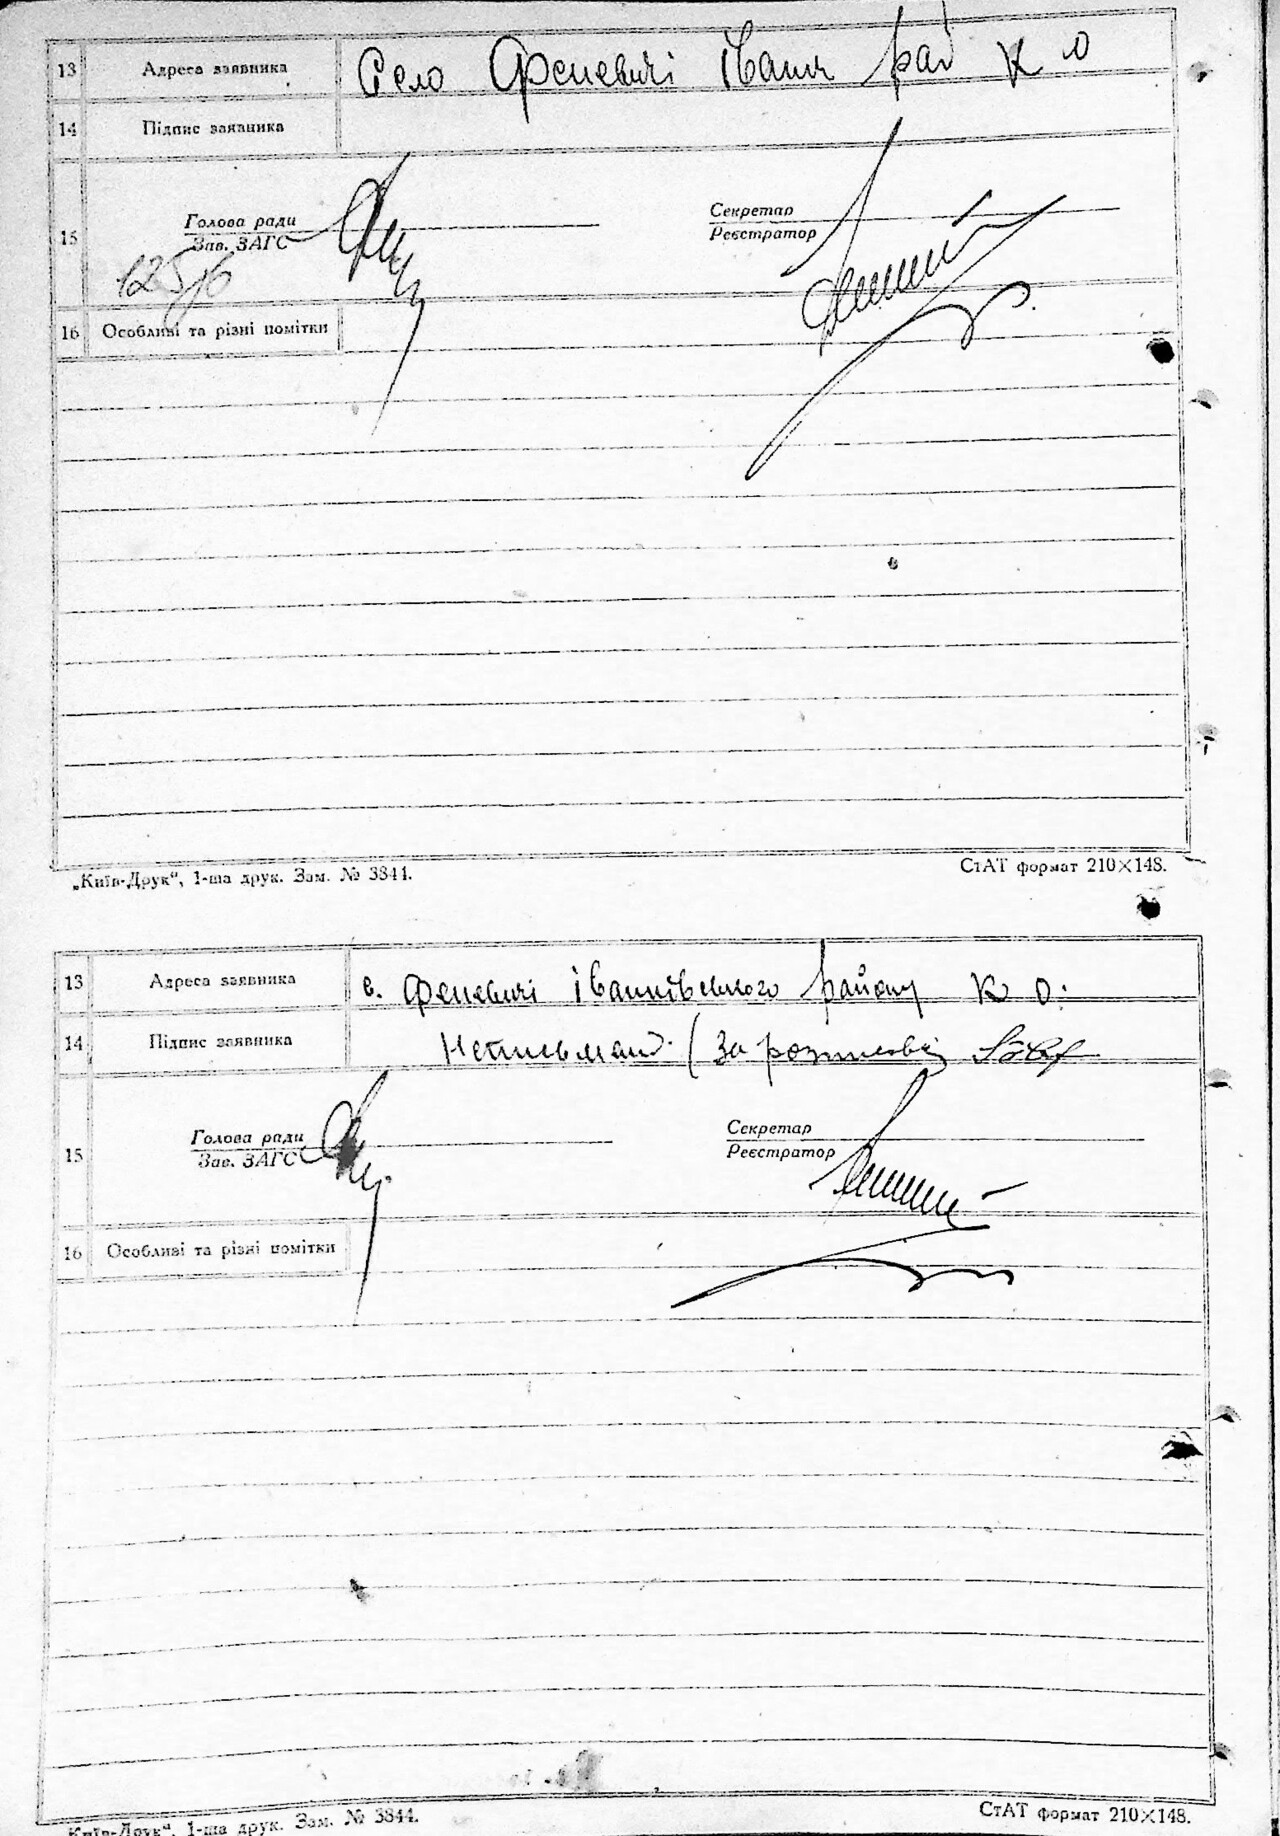 13 Адреса заявника Село Феневичі Іванк рай К О
14 Підпис заявника
15 Голова ради Секретар
Зав. ЗАГС Реєстратор
16 Особливі та різні помітки
„Київ-Друк“, 1-ша друк. Зам. № 3844. СтАТ формат 210×148.
13 Адреса заявника с. Феневичі Іванківського району К О.
14 Підпис заявника Неписьман. (За
15 Голова ради Секретар
Зав. ЗАГС Реєстратор
16 Особливі та різні помітки
„Київ-Друк“, 1-ша друк. Зам. № 3844. СтАТ формат 210×148.